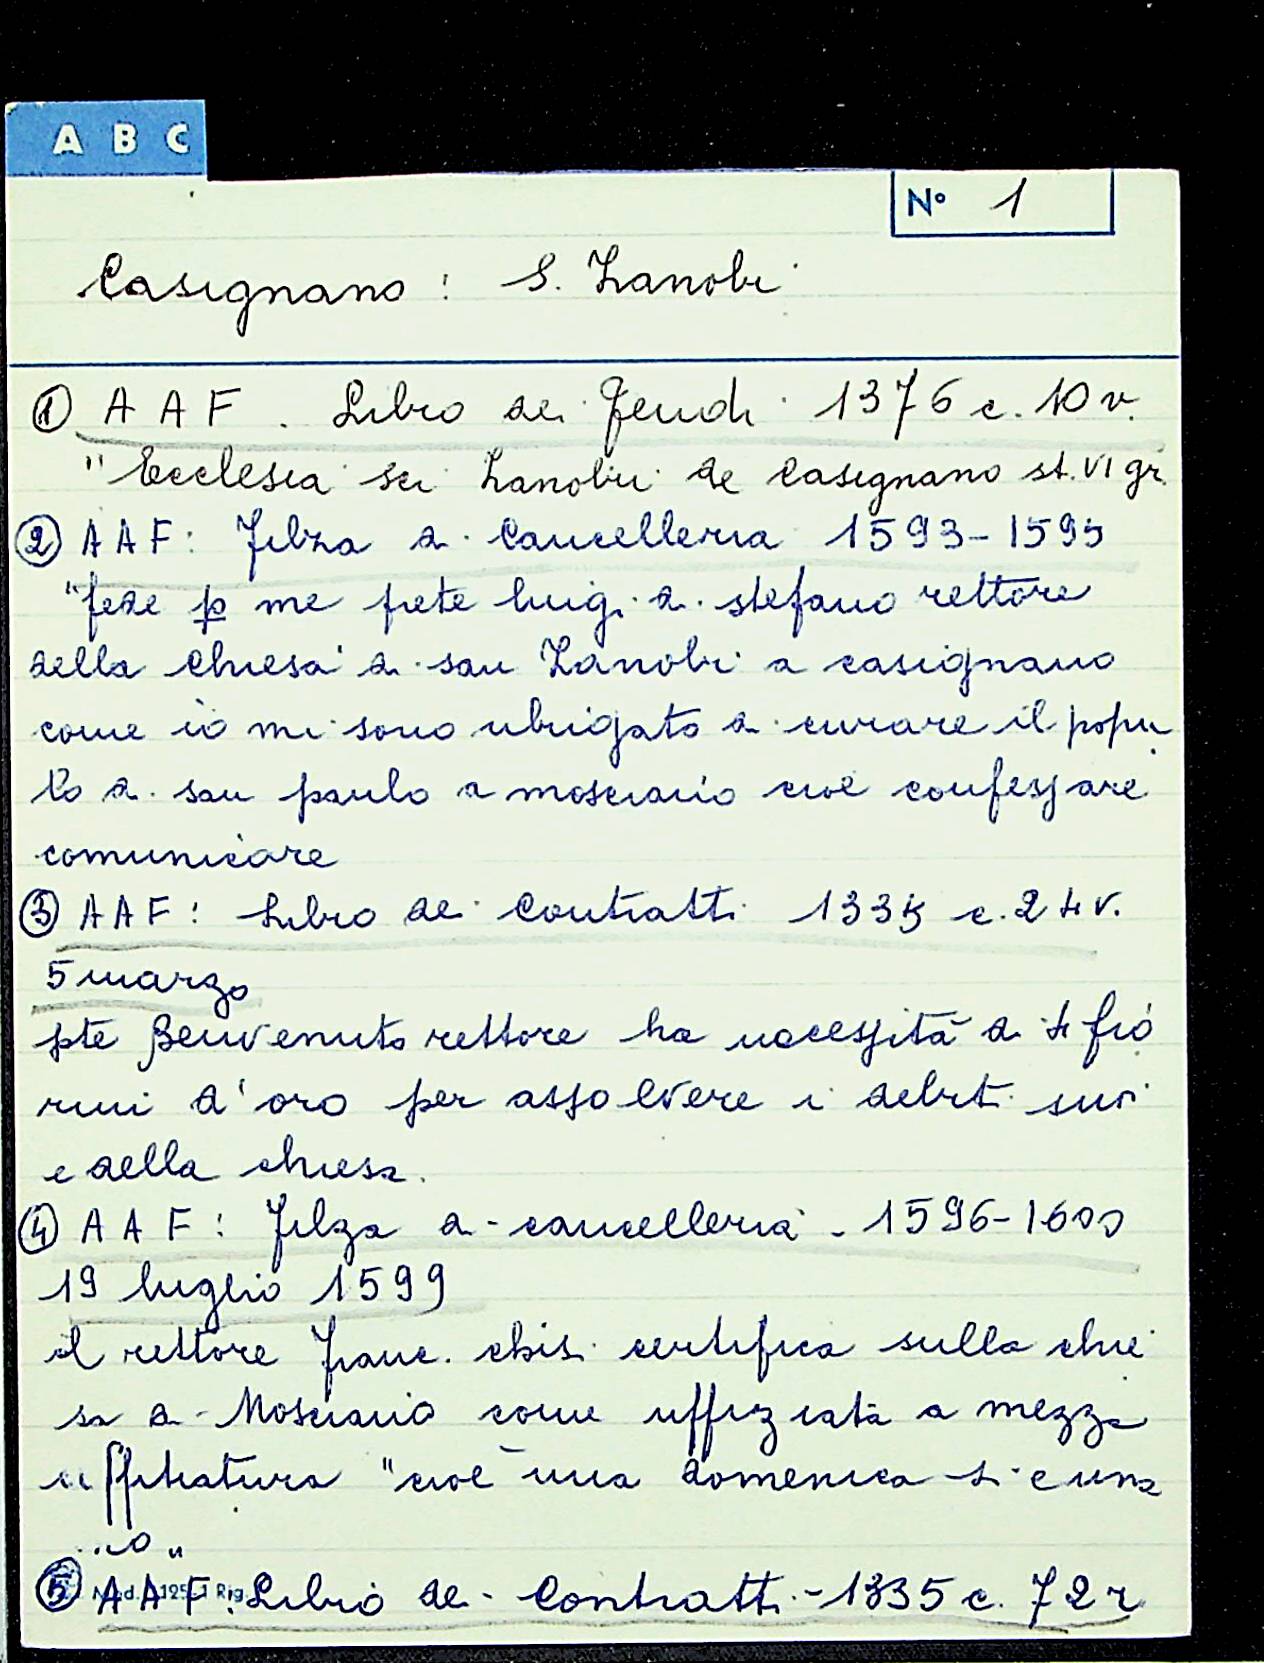 A B C
N° 1
Casignano : S. Zanobi
① A A F . Libro dei feudi 1376 c. 10 v.
" Ecclesia sci Zanobii de Casignano st. VI gr.
② A A F : Filza di Cancelleria 1593-1595
"fede p me prete luigi di stefano rettore
della chiesa di san Zanobi a casignano
come io mi sono ubrigato di curare il popu
lo di san paulo a mosciano cioè confessare
comunicare
③ A A F : Libro dei Contratti 1335 c. 24 v.
5 marzo
pte Benvenuto rettore ha necessità di 4 fio
rini d'oro per assolvere i debiti suoi
e della chiesa.
④ A A F : Filza di cancelleria - 1596-1600
19 luglio 1599
il rettore franc. certifica sulla chie
sa di Mosciano come uffiziata a mezza
uffitiatura "cioè una domenica si e una
no"
⑤ A A F : Libro dei Contratti - 1335 c. 72 r